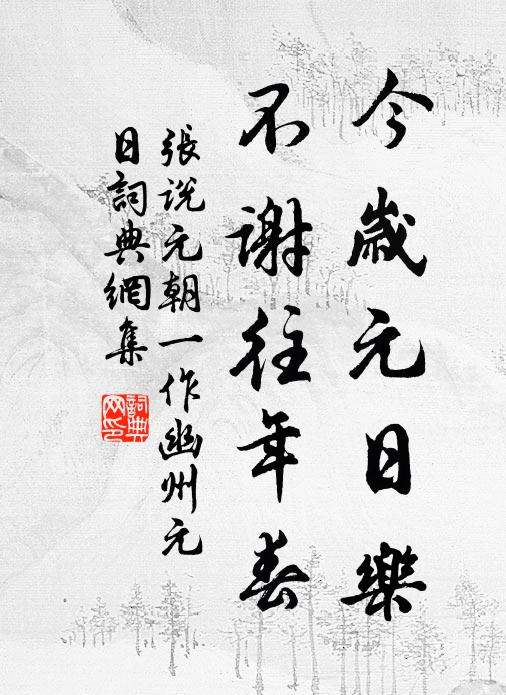 今歲元日樂
不謝往年春
張說元朝一作幽州元
日詞典網集
詞典网印